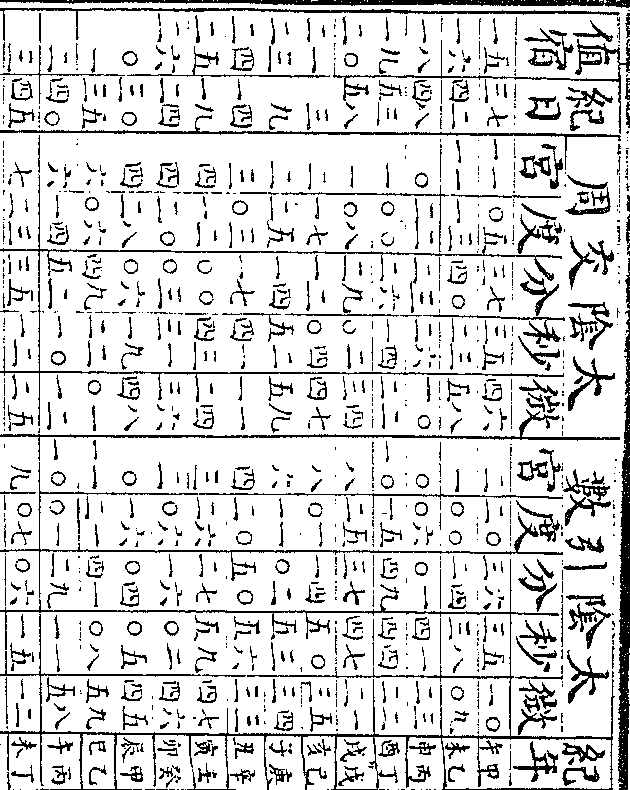 紀年 太陰引數 宮 度 分 秒 微 太陰交周 宮 度 分 秒 微 紀日 值宿
甲午 二 二〇 三六 三五 一〇 一一 〇五 三七 三五 四六 三七 一五
乙未 一 〇〇 二四 三八 〇九 一一 一三 四〇 二三 五八 四二 一六
丙申 〇 〇六 〇一 四一 二三 〇 二二 二三 二六 一〇 四八 一八
丁酉 一〇 一五 四九 四四 二二 一 〇〇 二六 一四 二二 五三 一九
戊戌 八 二五 三七 四七 二一 一 〇八 二九 〇二 三四 五八 二〇
己亥 八 〇一 一四 五〇 三五 二 一七 一二 〇四 四七 三 二一
庚子 六 一一 〇二 五三 三四 二 二五 一四 五二 五九 九 二三
辛丑 四 二〇 五〇 五六 三三 三 〇三 一七 四一 一一 一四 二四
壬寅 三 二六 二七 五九 四七 四 一二 〇〇 四三 二四 一九 二五
癸卯 二 〇六 一六 〇二 四六 四 二〇 〇三 三一 三六 二四 二六
甲辰 〇 一六 〇四 〇五 四五 四 二八 〇六 一九 四八 三〇 〇
乙巳 一一 二一 四一 〇八 五九 六 〇六 四九 二二 〇一 三五 一
丙午 一〇 〇一 二九 一一 五八 六 一四 五二 一〇 一三 四〇 二
丁未 九 〇七 〇六 一五 一二 七 二三 三五 一二 二五 四五 三